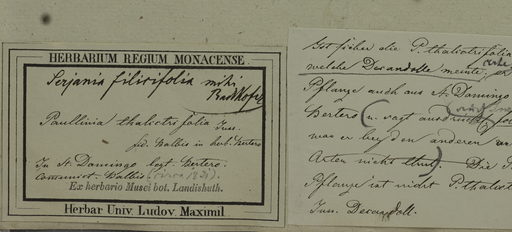 HERBARIUM REGIUM MONACENSE.
Serjania filicifolia mihi
Radlkofer
Paullinia thalictrifolia Juss.
fid. Balbis in herb. Bertero
In St. Domingo legt. Bertero.
Communict. Balbis (circa 1821).
Ex herbario Musei bot. Landishuth.
Herbar Univ. Ludov. Maximil.
Ist sicher die P. thalictrifolia
welche Decandolle meinte,
Pflanze auch aus St. Domingo
Bertero (u. sagt
was er bey den anderen
Arten nicht thut). Die
Pflanze ist nicht P. thalict
Juss. Decandoll.